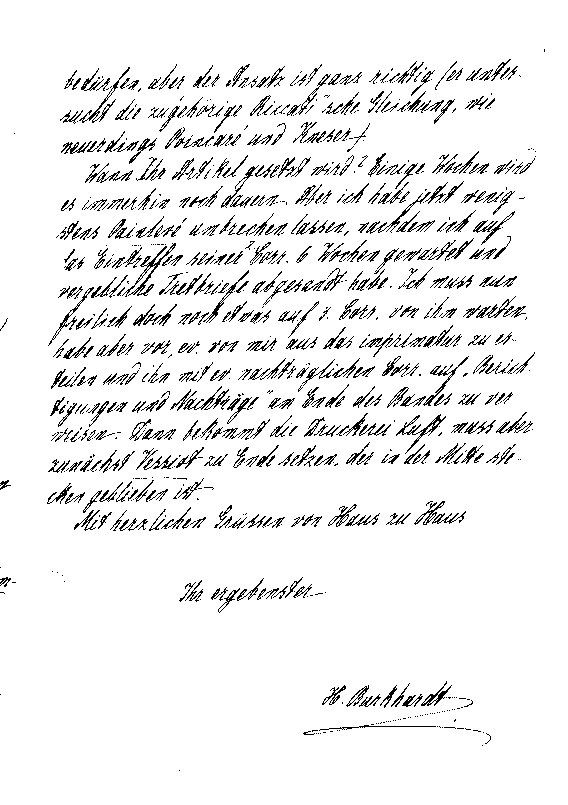 bedürfen, aber der Ansatz ist ganz richtig (er unter-
sucht die zugehörige Riccati'sche Gleichung, wie
neuerdings Poincaré und Kneser).
Wann Ihr Artikel gesetzt wird? Einige Wochen wird
es immerhin noch dauern. Aber ich habe jetzt wenig-
stens Painlevé umbrechen lassen, nachdem ich auf
das Eintreffen seiner 2 Corr. 6 Wochen gewartet und
vergebliche Tretbriefe abgesandt habe. Ich muss nun
freilich doch noch etwas auf 3. Corr. von ihm warten,
habe aber vor, ev. von mir aus das imprimatur zu er-
teilen und ihn mit ev. nachträglichen Corr. auf „Berich-
tigungen und Nachträge" am Ende des Bandes zu ver
weisen. Dann bekommt die Druckerei Luft, muss aber
zunächst Vessiot zu Ende setzen, der in der Mitte ste-
cken geblieben ist.
Mit herzlichen Grüssen von Haus zu Haus
Ihr ergebenster
H. Burkhardt